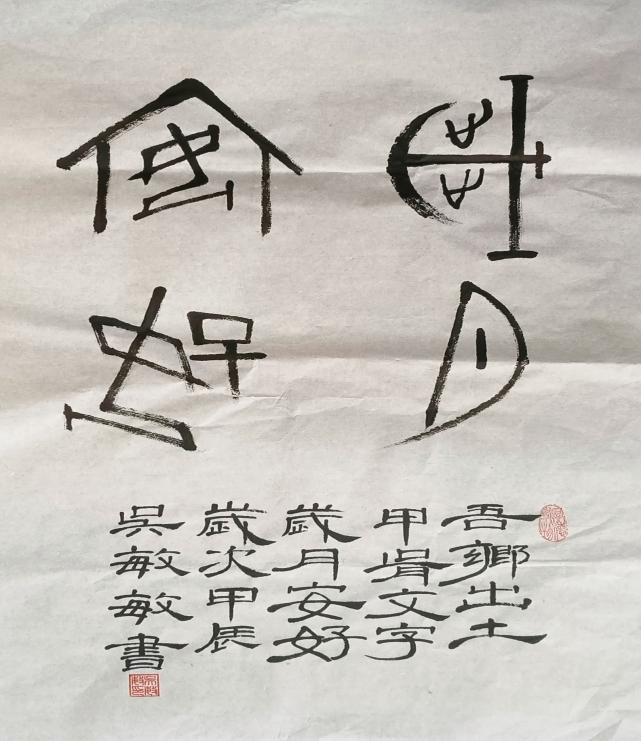 歲月
安好
吾鄉出土
甲骨文字
歲月安好
歲次甲辰
吳敏敏書